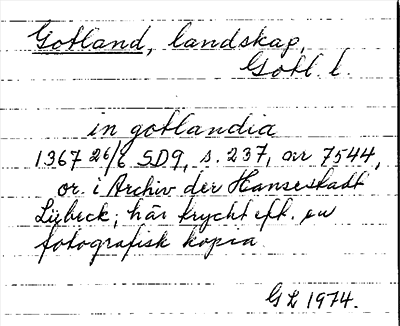 Gotland, landskap,
Gotl. l.
in gotlandia
1367 26/6 SD9, s. 237, nr 7544,
or. i Archiv der Hansestadt
Lübeck; här tryckt eft. en
fotografisk kopia
GL 1974.